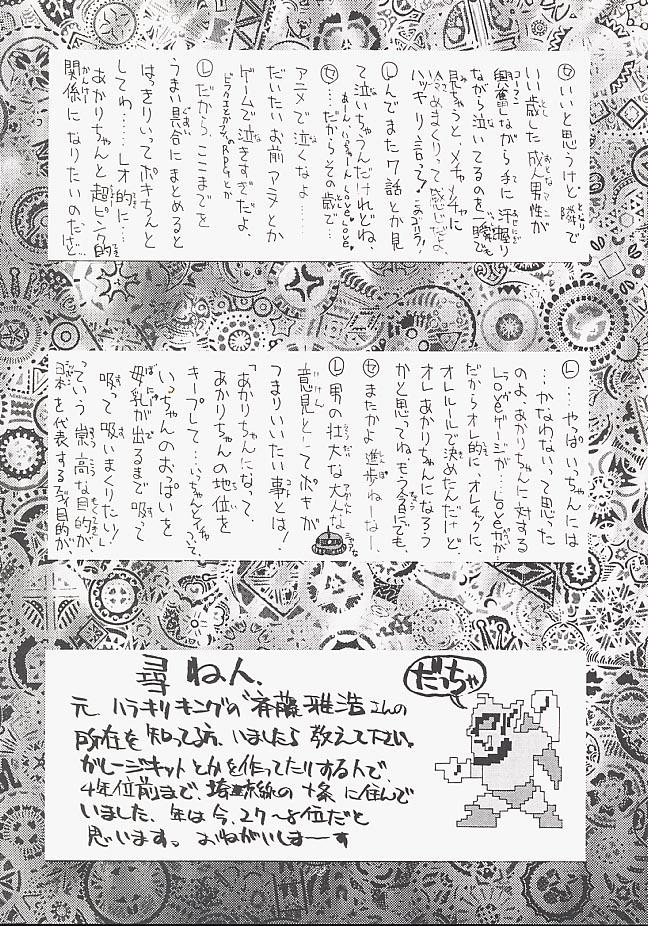 ㋝ いいと思うけど 隣で
いい歳した成人男性が
興奮しながら手に汗握り
ながら泣いてるのを一瞬でも
見ちゃうと、メチャメチャに
あまりって感じだよ。
ハッキリ言って!
㋹ んでまた7話とか見
て泣いちゃうんだけれどね、
LOVE LOVE。
㋝ …だからその歳で
アニメで泣くなよ……
だいたいお前 アニメとか
ゲームで泣きすぎだよ。
RPGとか
㋹ だから ここまでを
うまい具合にまとめると
はっきりいってボキちんと
しては……レオ的に……
あかりちゃんと超ピンク的
関係になりたいのだけど…
㋹ …やっぱいっちゃんには
…かなわないって思った
のよ、あかりちゃんに対する
Loveゲージが…Loveが
だからオレ的に、オレチックに、
オレルールで決めたんだけど、
オレあかりちゃんになろう
かと思ってね もう今にでも
㋝ またかよ 進歩ねーなー、
㋹ 男の壮大な大人な
意見としてボキが
つまりいいたい事とは!
「あかりちゃんになって、
あかりちゃんの地位を
キープして、いっちゃんとイチャって、
いっちゃんのおぱいを
母乳が出るまで吸って
吸って吸いまくりたい!」
っていう 崇高な目的が
を代表する 目的が
尋ねん、
だっちゃ
元 ハラキリキングの〝斉藤雅浩さんの
所在を知ってる方、いましたら 教えて下さい。
ガレージキットとかを作ってたりする人で、
4年位前まで、埼京線の十条に住んで
いました、年は今、27〜8位だと
思います。おねがいしまーーす